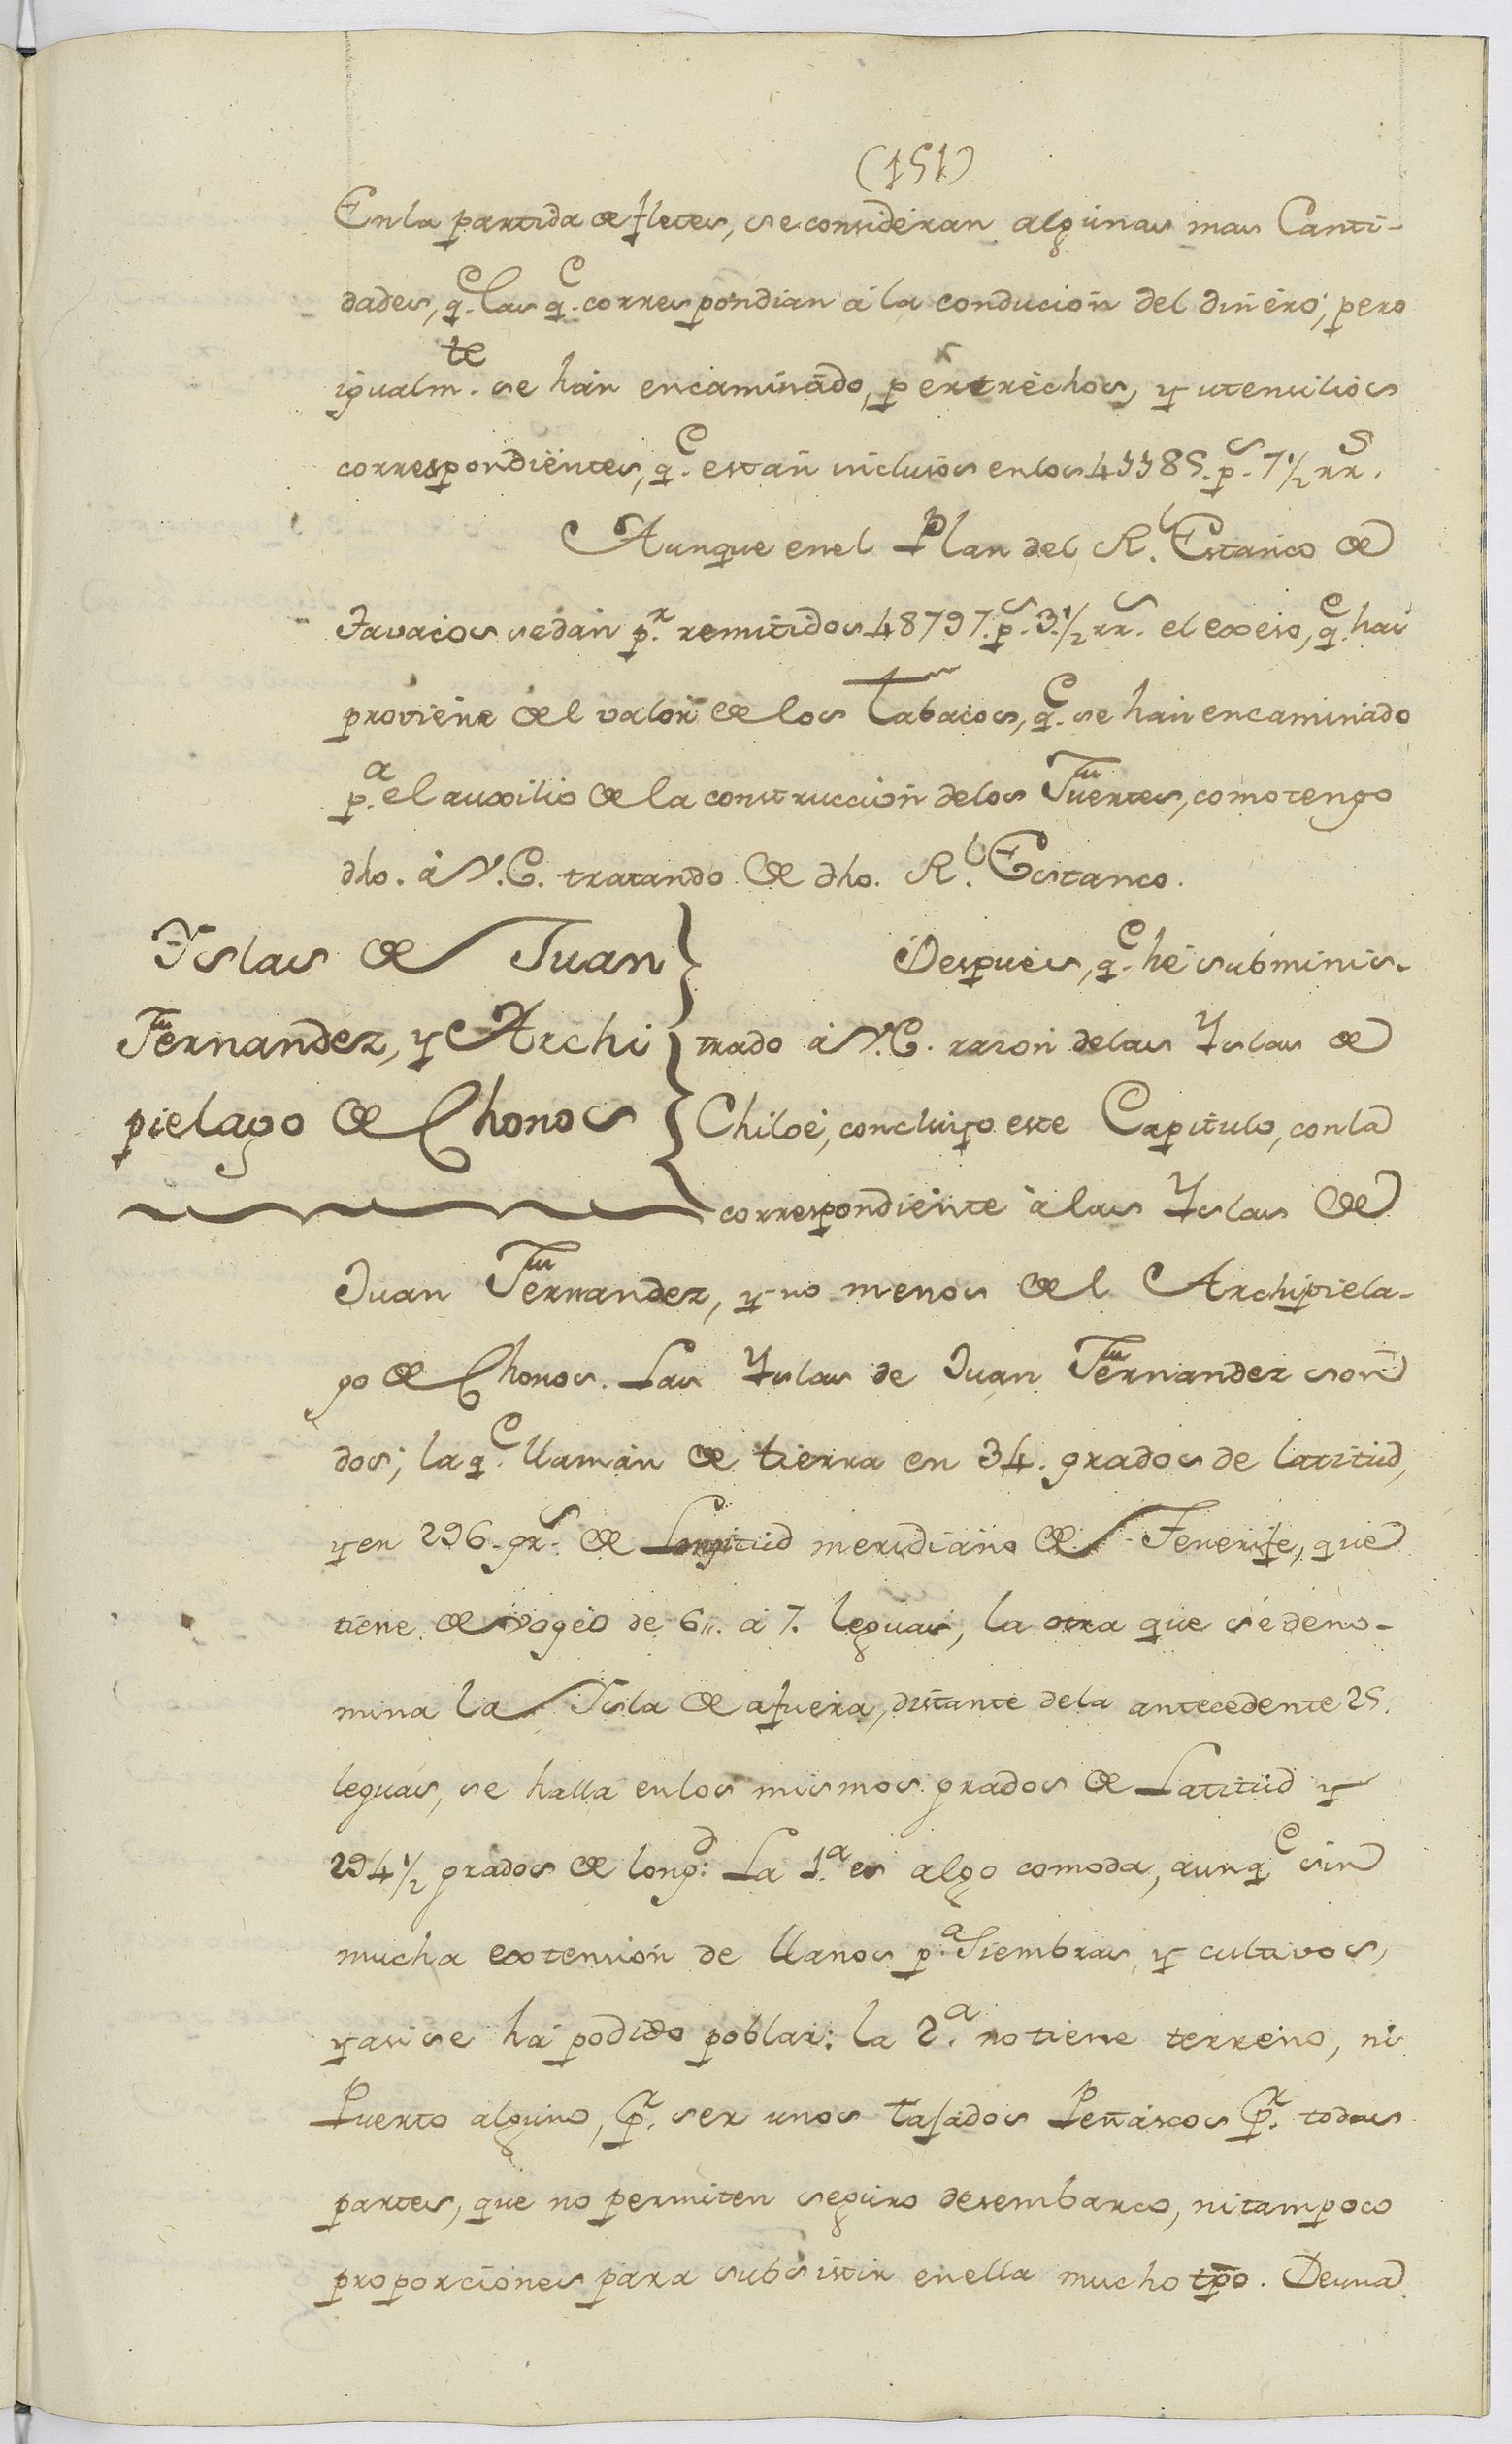 (151)
En la partida de fletes, se consideran algunas mas Canti-
dades, q.e las q.e correspondian a la conducion del dinero; pero
igualm.te se han encaminado, pertrechos, y utensilios
correspondientes, q.e estan inclusos en los 45585. p.s 7 1/2 rr.s
Aunque en el Plan del R.l Estanco de
Tavacos se dan p.r remitidos 48797. p.s 3. 1/2 rr.s el exeso, q.e hai
proviene del valor de los Tabacos, q.e se han encaminado
p.a el auxilio de la construccion de los Fuertes, como tengo
dho. à V.E. tratando de dho. R.l Estanco.
Yslas de Juan
Fernandez, y Archi
pielago de Chonos
Despues, q.e hé subminis-
trado à V.E. razon de las Yslas de
Chiloé, concluiyo este Capitulo, con la
correspondiente à las Yslas de
Juan Fernandez, y no menos del Archipiela-
go de Chonos. Las Yslas de Juan Fernandez son
dos; la q.e llaman de tierra en 34. grados de latitud,
y en 296. gr.s de Longitud meridiano de Tenerife, que
tiene de vogeo de 6,, a 7. leguas, la otra que se deno-
mina la Ysla de afuera, distante de la antecedente 25.
leguas, se halla en los mismos grados de Latitud y
294 1/2 grados de long.d: La 1.a es algo comoda, aunq.e sin
mucha extension de llanos p.a Siembras, y cultivos,
y asi se há podido poblar: la 2.a no tiene terreno, ni
Puerto alguno, p.r ser unos tajados Peñascos p.r todas
partes, que no permiten seguro desembarco, ni tampoco
proporciones para subsistir en ella mucho tpo. De una